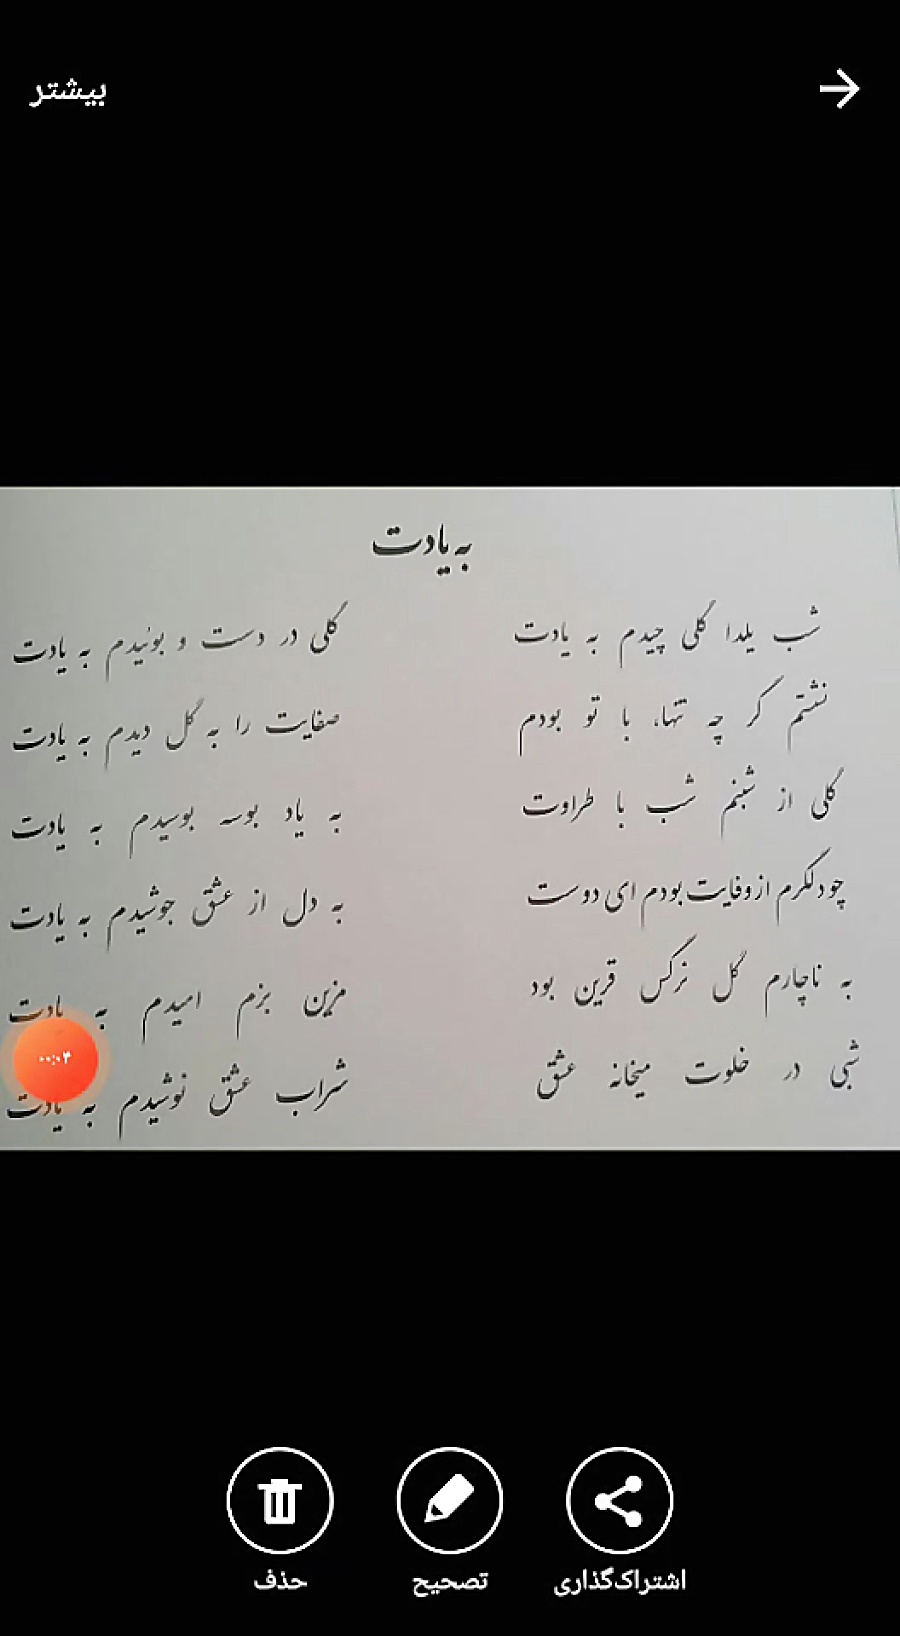 بیشتر
به یادت
شب یلدا گلی چیدم به یادت گلی در دست و بوئیدم به یادت
نشستم گر چه تنها، با تو بودم صفایت را به گل دیدم به یادت
گلی از شبنم شب با طراوت به یاد بوسه بوسیدم به یادت
چو دلگرم از وفایت بودم ای دوست به دل از عشق جوشیدم به یادت
به ناچارم گل نرگس قرین بود مزین بزم امیدم به یادت
شبی در خلوت میخانه عشق شراب عشق نوشیدم به یادت
۰۰:۰۳
حذف تصحیح اشتراک‌گذاری